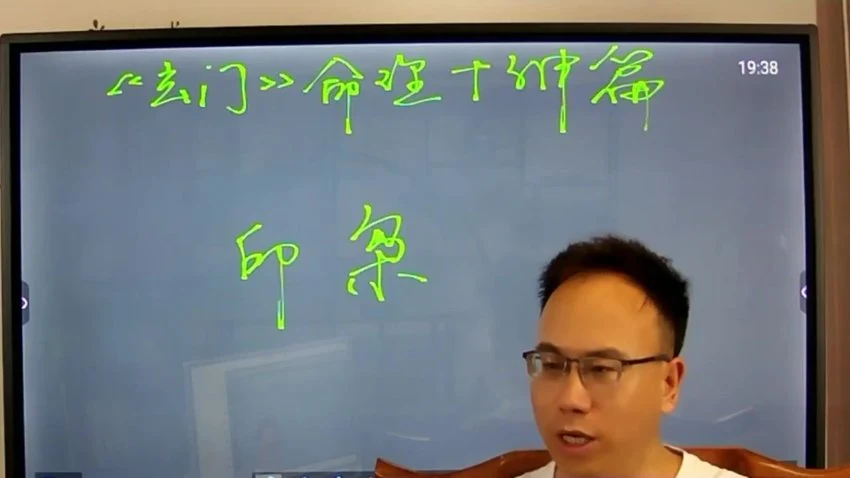 《玄门》命理十神篇
19:38
印枭